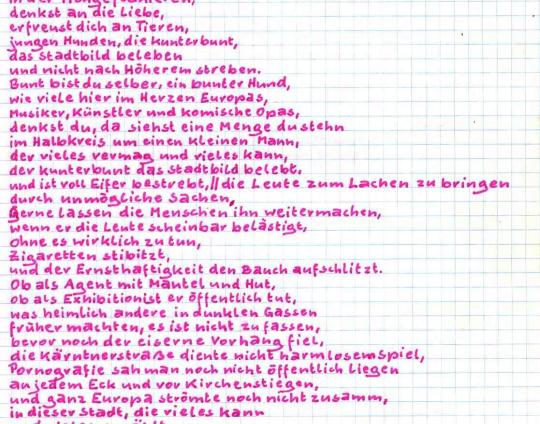 denkst an die Liebe,
erfreust dich an Tieren,
jungen Hunden, die kunterbunt,
das Stadtbild beleben
und nicht nach Höherem streben.
Bunt bist du selber, ein bunter Hund,
wie viele hier im Herzen Europas,
Musiker, Künstler und komische Opas,
denkst du, da siehst eine Menge du stehn
im Halbkreis um einen kleinen Mann,
der vieles vermag und vieles kann,
der kunterbunt das Stadtbild belebt.
und ist voll Eifer bestrebt,// die Leute zum Lachen zu bringen
durch unmögliche Sachen,
Gerne lassen die Menschen ihn weitermachen,
wenn er die Leute scheinbar belästigt,
ohne es wirklich zu tun,
Zigaretten stibitzt,
und der Ernsthaftigkeit den Bauch aufschlitzt.
Ob als Agent mit Mantel und Hut,
ob als Exhibitionist er öffentlich tut,
was heimlich andere in dunklen Gassen
früher machten, es ist nicht zu fassen,
bevor noch der eiserne Vorhang fiel,
die Kärntnerstraße diente nicht harmlosem Spiel,
Pornografie sah man noch nicht öffentlich liegen
an jedem Eck und vor Kirchenstiegen,
und ganz Europa strömte noch nicht zusamm,
in dieser Stadt, die vieles kann